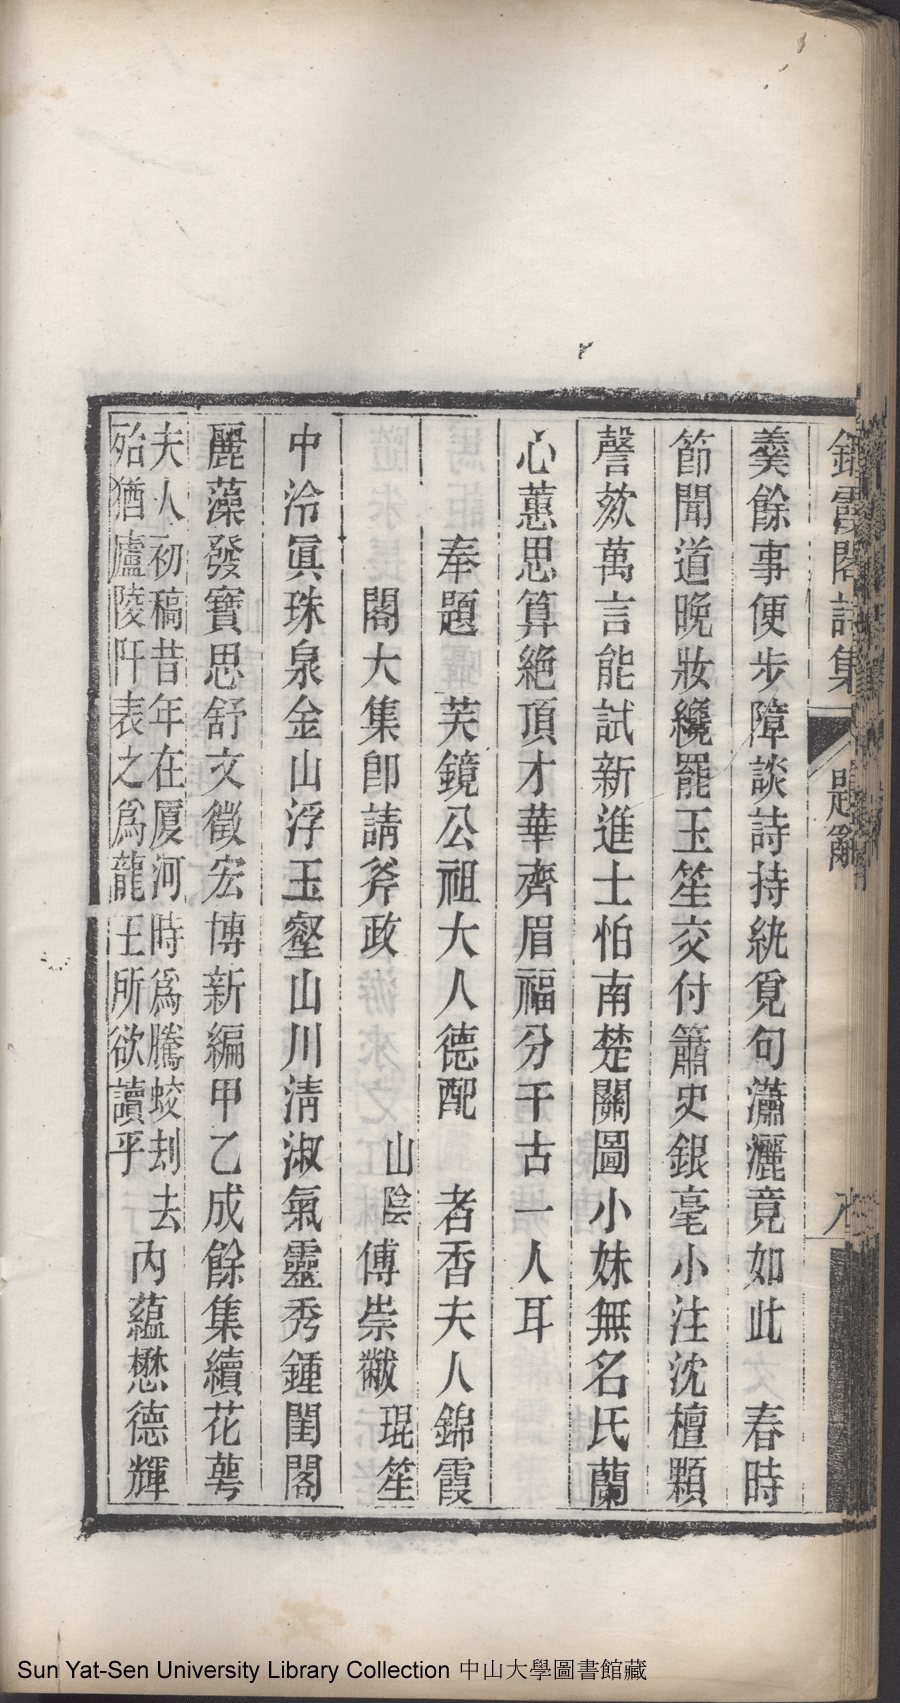 錦霞閣詩集 題辭 八
羹餘事便步障談詩持統覓句瀟灑竟如此 春時
節聞道晚妝纔罷玉笙交付簫史銀毫小注沈檀顆
謦欬萬言能試新進士怕南楚關圖小妹無名氏蘭
心蕙思算絶頂才華齊眉福分千古一人耳
奉題 芙鏡公祖大人德配 者香夫人錦霞
閣大集卽請斧政 山陰 傅崇黻 琨笙
中泠眞珠泉金山浮玉壑山川淸淑氣靈秀鍾閨閣
麗藻發寶思舒文徵宏博新編甲乙成餘集續花萼
夫人初稿昔年在厦河時爲騰蛟刦去
殆猶廬陵阡表之爲龍王所欲讀乎
內蘊懋德輝
Sun Yat-Sen University Library Collection 中山大學圖書館藏